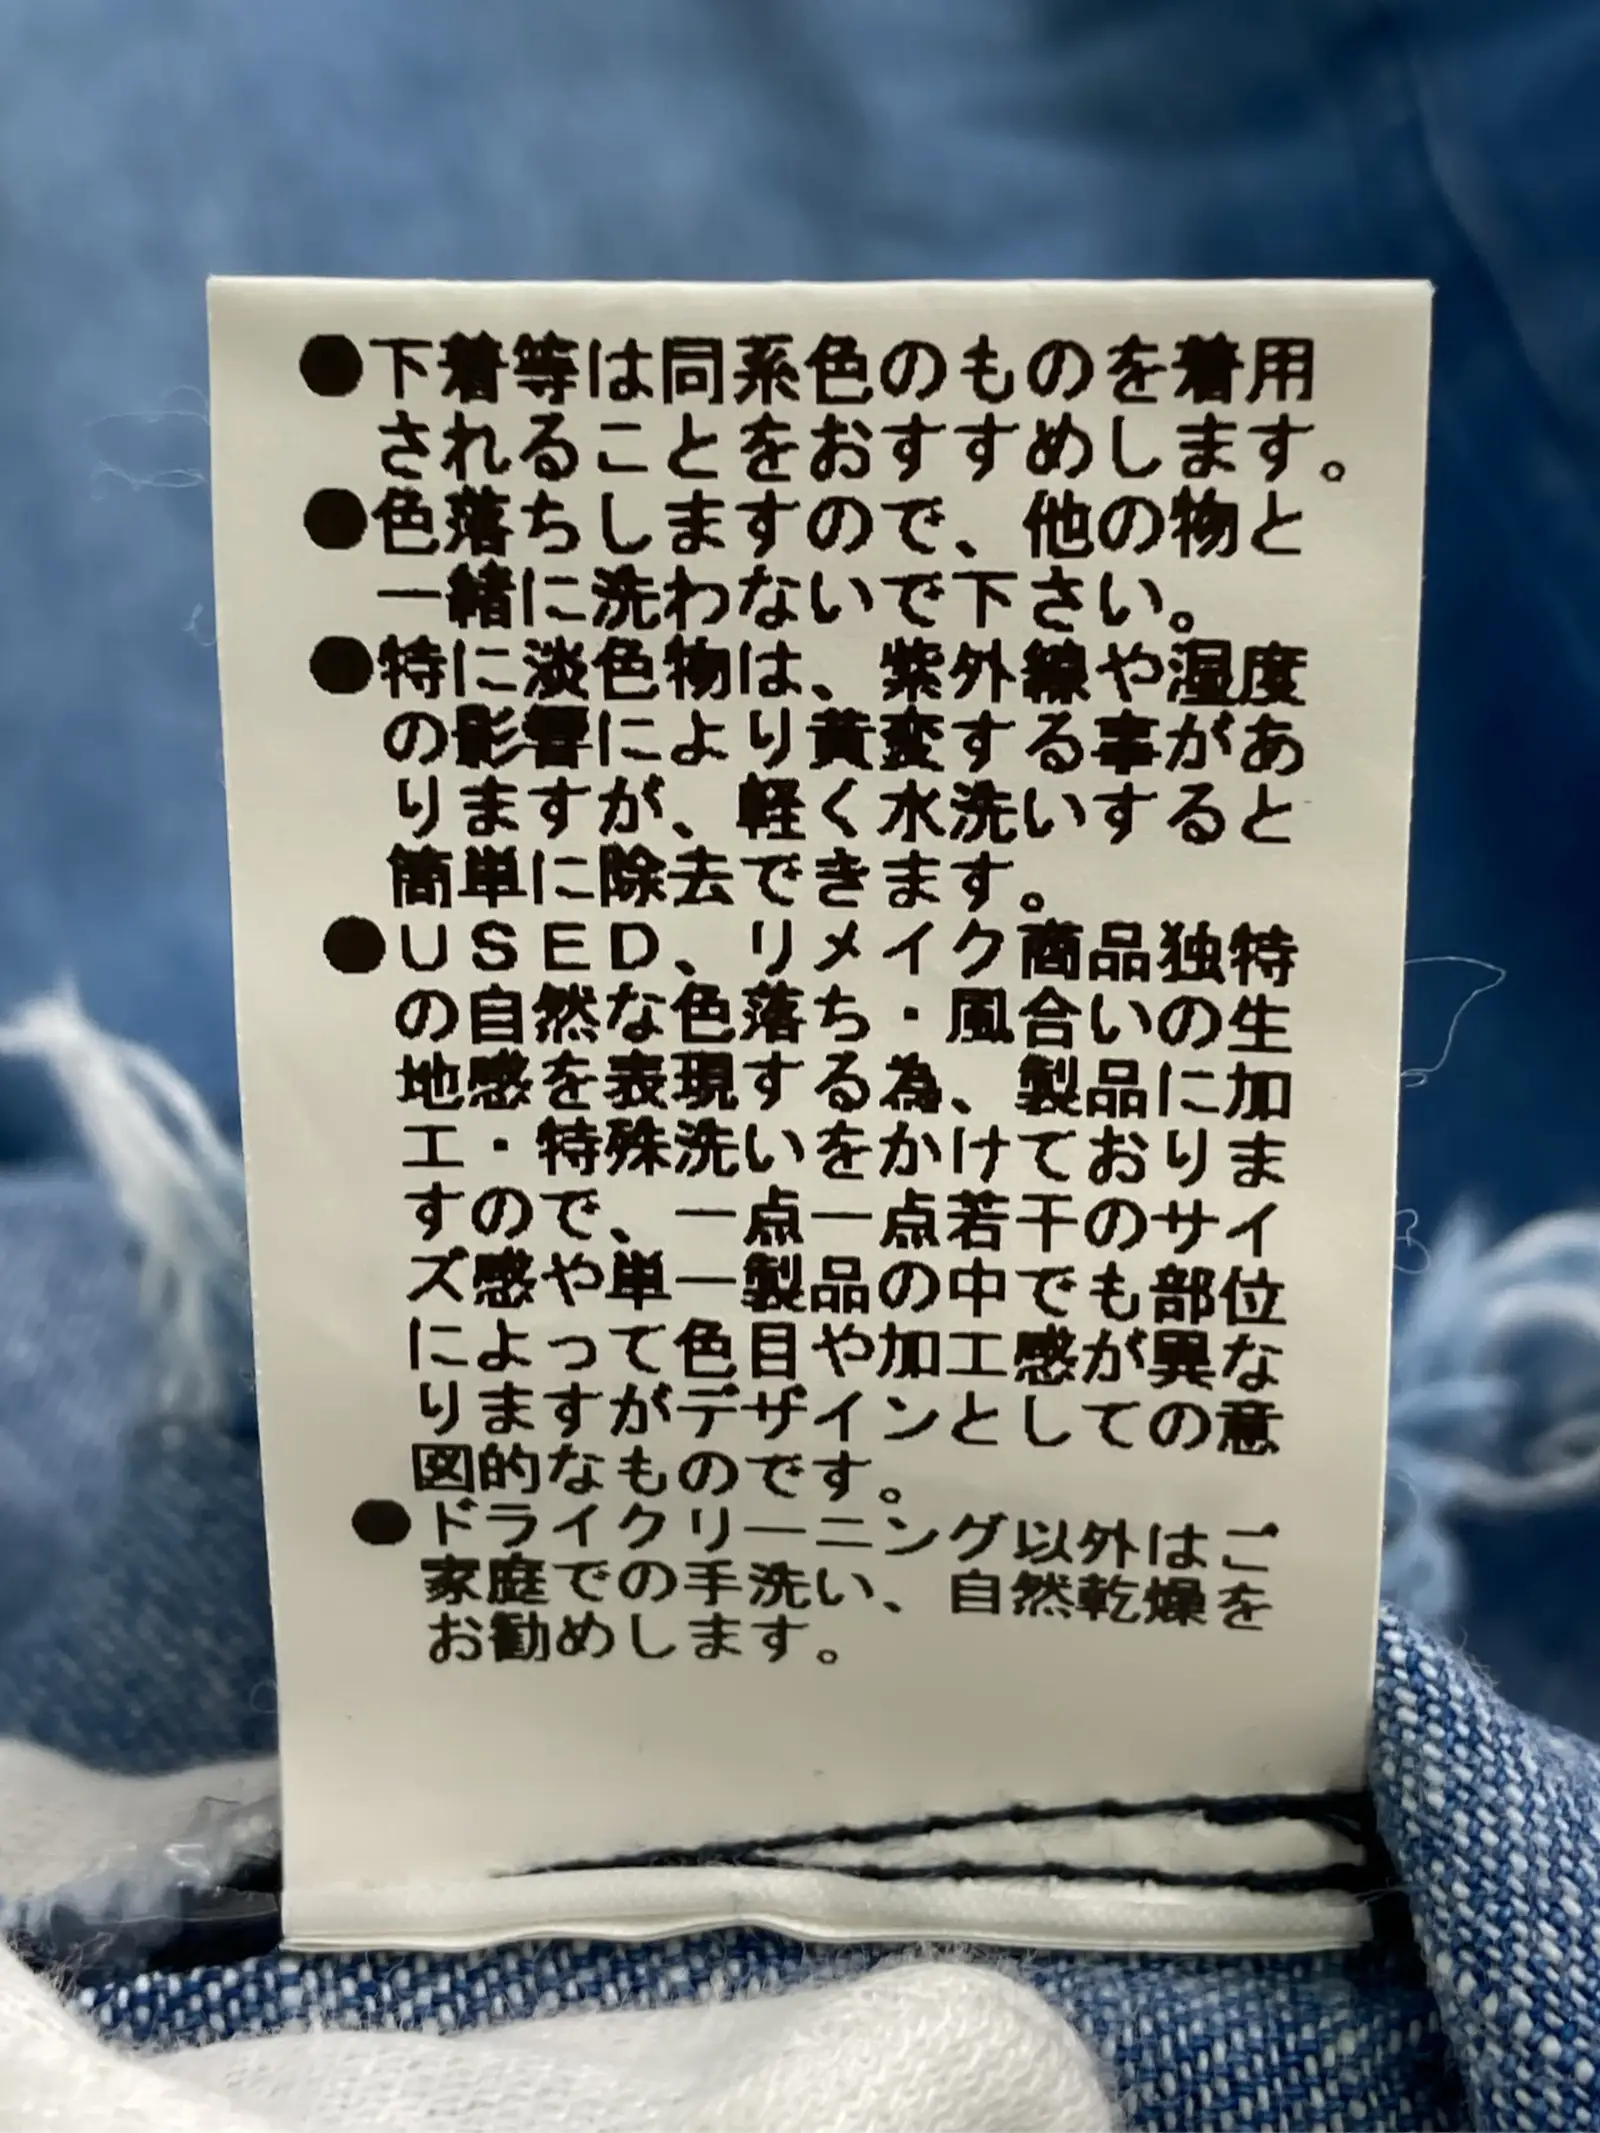 ●下着等は同系色のものを着用
されることをおすすめします。
●色落ちしますので、他の物と
一緒に洗わないで下さい。
●特に淡色物は、紫外線や湿度
の影響により黄変する事があ
りますが、軽く水洗いすると
簡単に除去できます。
●ＵＳＥＤ、リメイク商品独特
の自然な色落ち・風合いの生
地感を表現する為、製品に加
工・特殊洗いをかけておりま
すので、一点一点若干のサイ
ズ感や単一製品の中でも部位
によって色目や加工感が異な
りますがデザインとしての意
図的なものです。
●ドライクリーニング以外はご
家庭での手洗い、自然乾燥を
お勧めします。